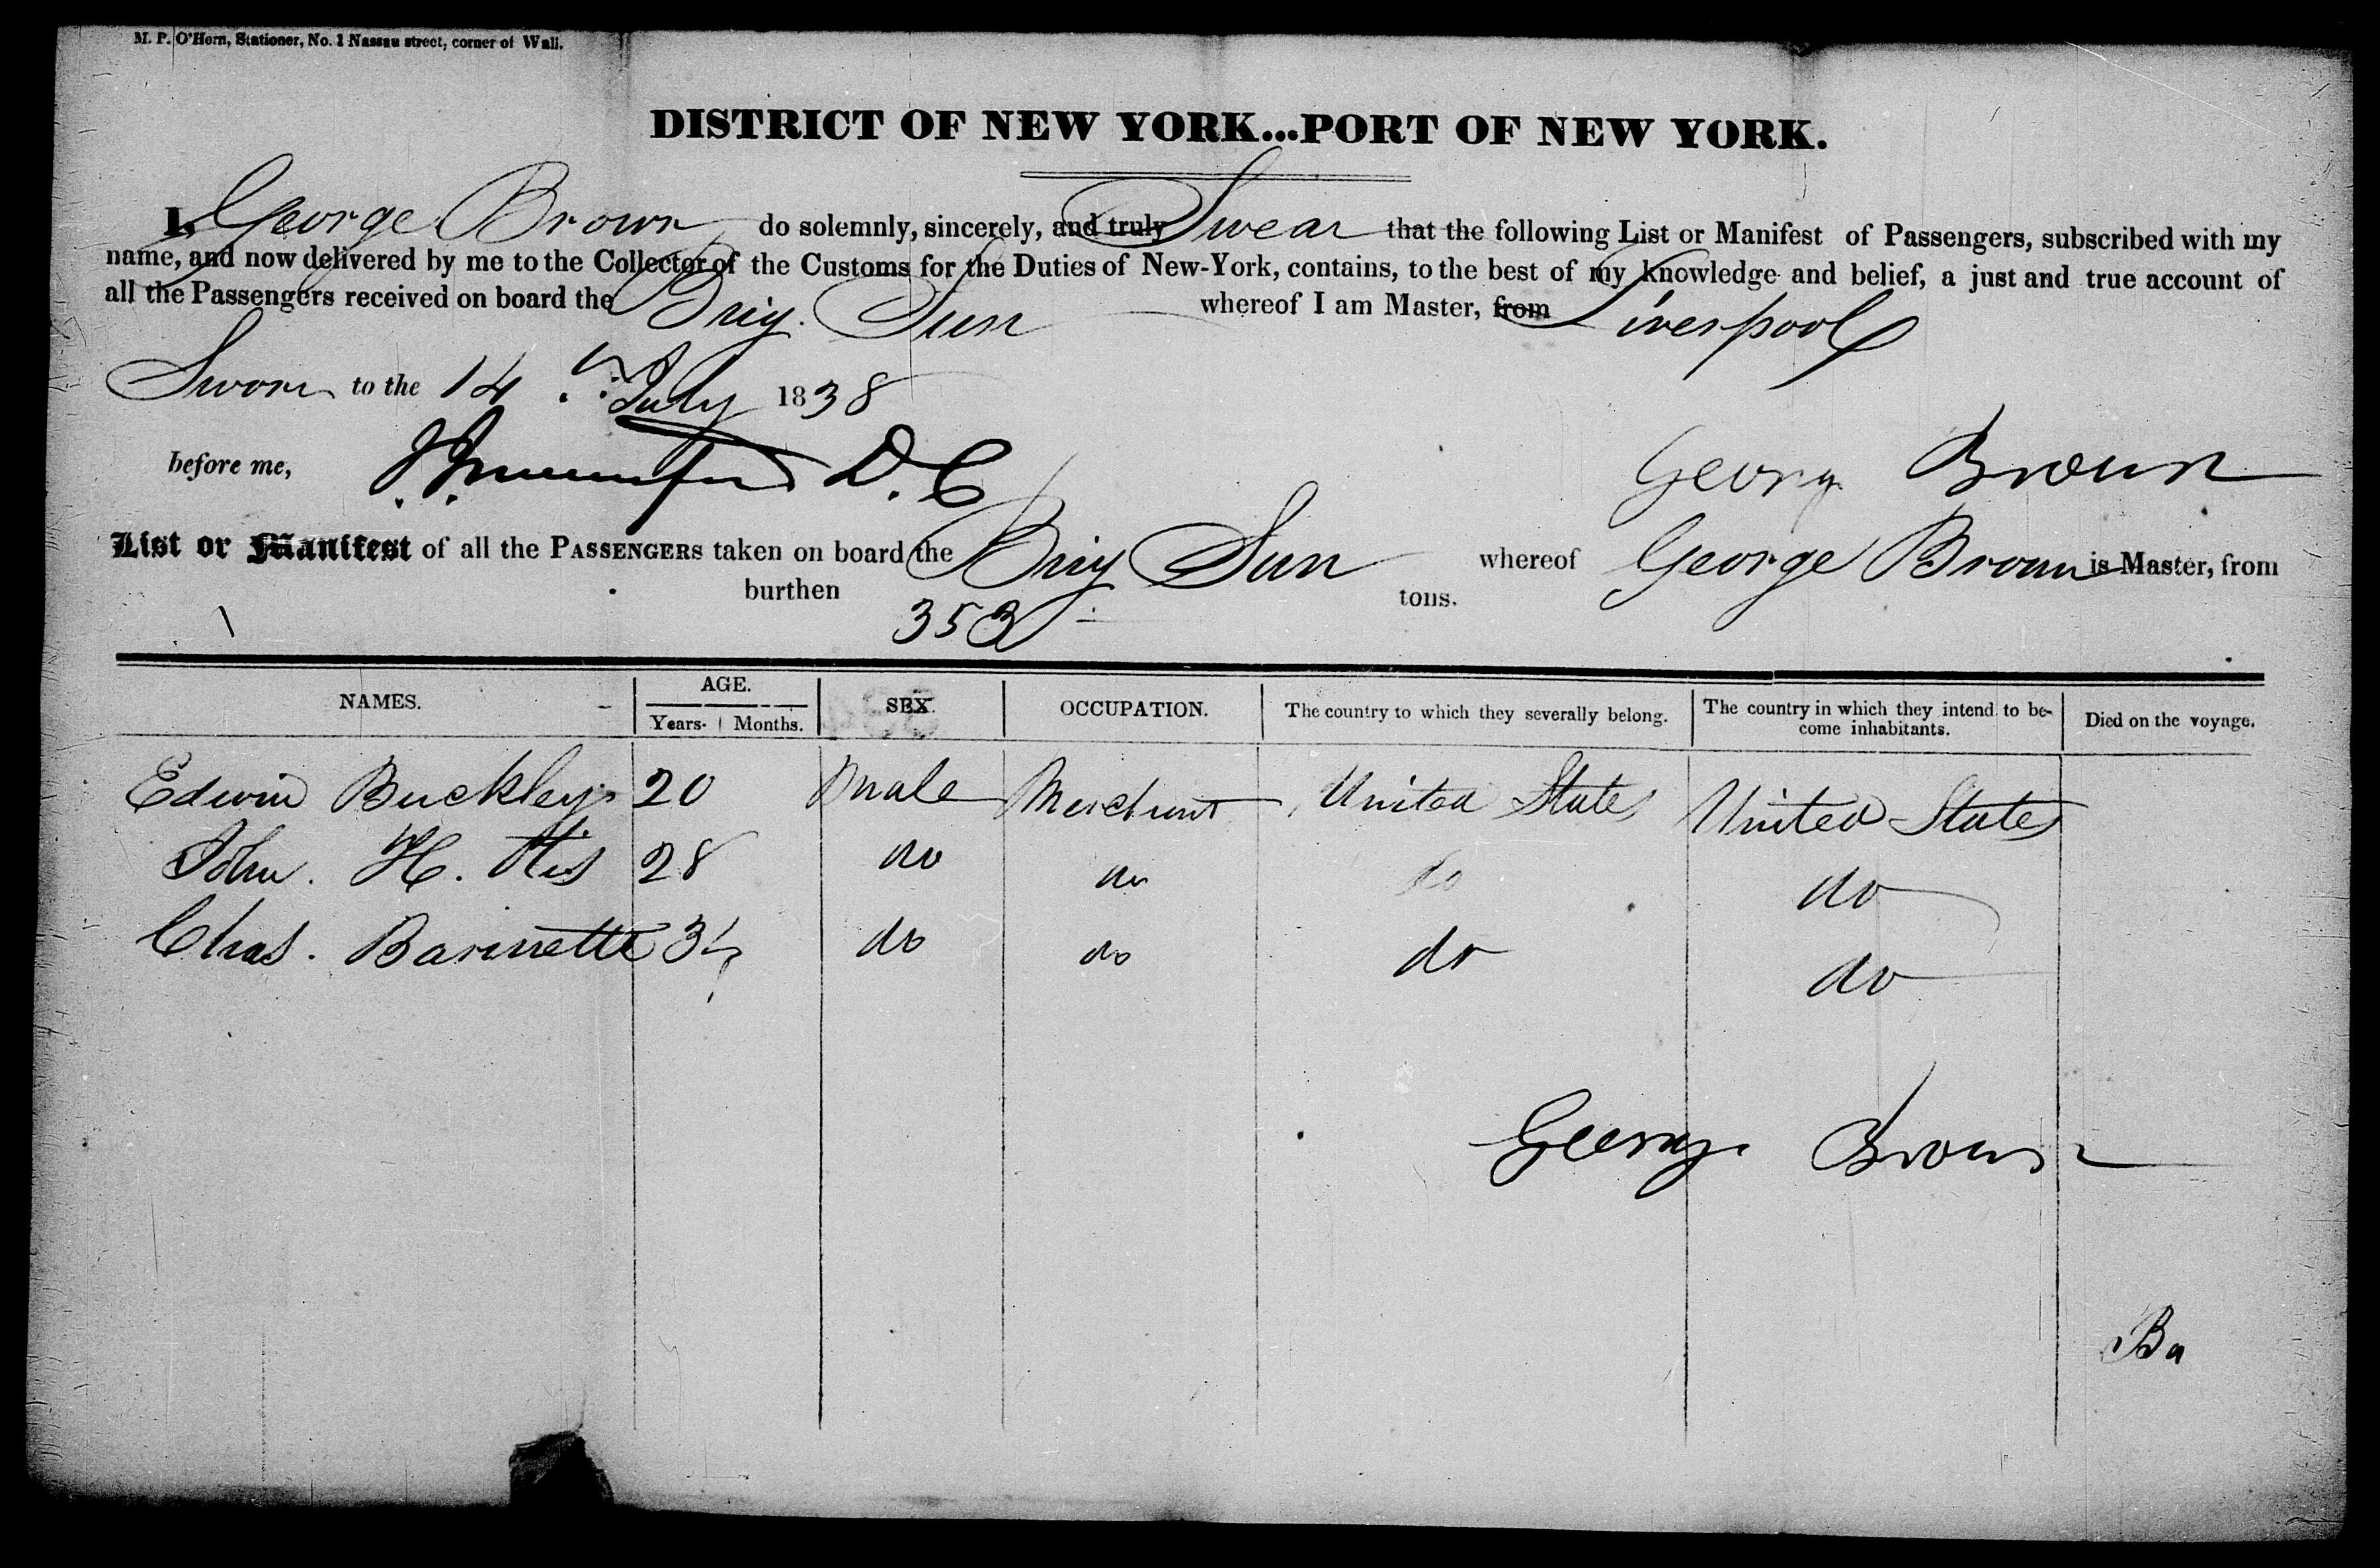 M. P. O'Hern, Stationer, No. 1 Nassau street, corner of Wall.
DISTRICT OF NEW YORK...PORT OF NEW YORK.
I, George Brown do solemnly, sincerely, and truly Swear that the following List or Manifest of Passengers, subscribed with my
name, and now delivered by me to the Collector of the Customs for the Duties of New-York, contains, to the best of my knowledge and belief, a just and true account of
all the Passengers received on board the Brig. Sun whereof I am Master, from Liverpool
Sworn to the 14 July 1838
before me, D. C George Brown
List or Manifest of all the PASSENGERS taken on board the Brig Sun whereof George Brown is Master, from
burthen 353 tons.
NAMES. AGE. SEX. OCCUPATION. The country to which they severally belong. The country in which they intend to be- Died on the voyage.
Years. Months. come inhabitants.
Edwin Buckley 20 Male Merchant United States United States
John. H. Otis 28 do do do do
Chas. Barinette 34 do do do do
George Brown
Ba